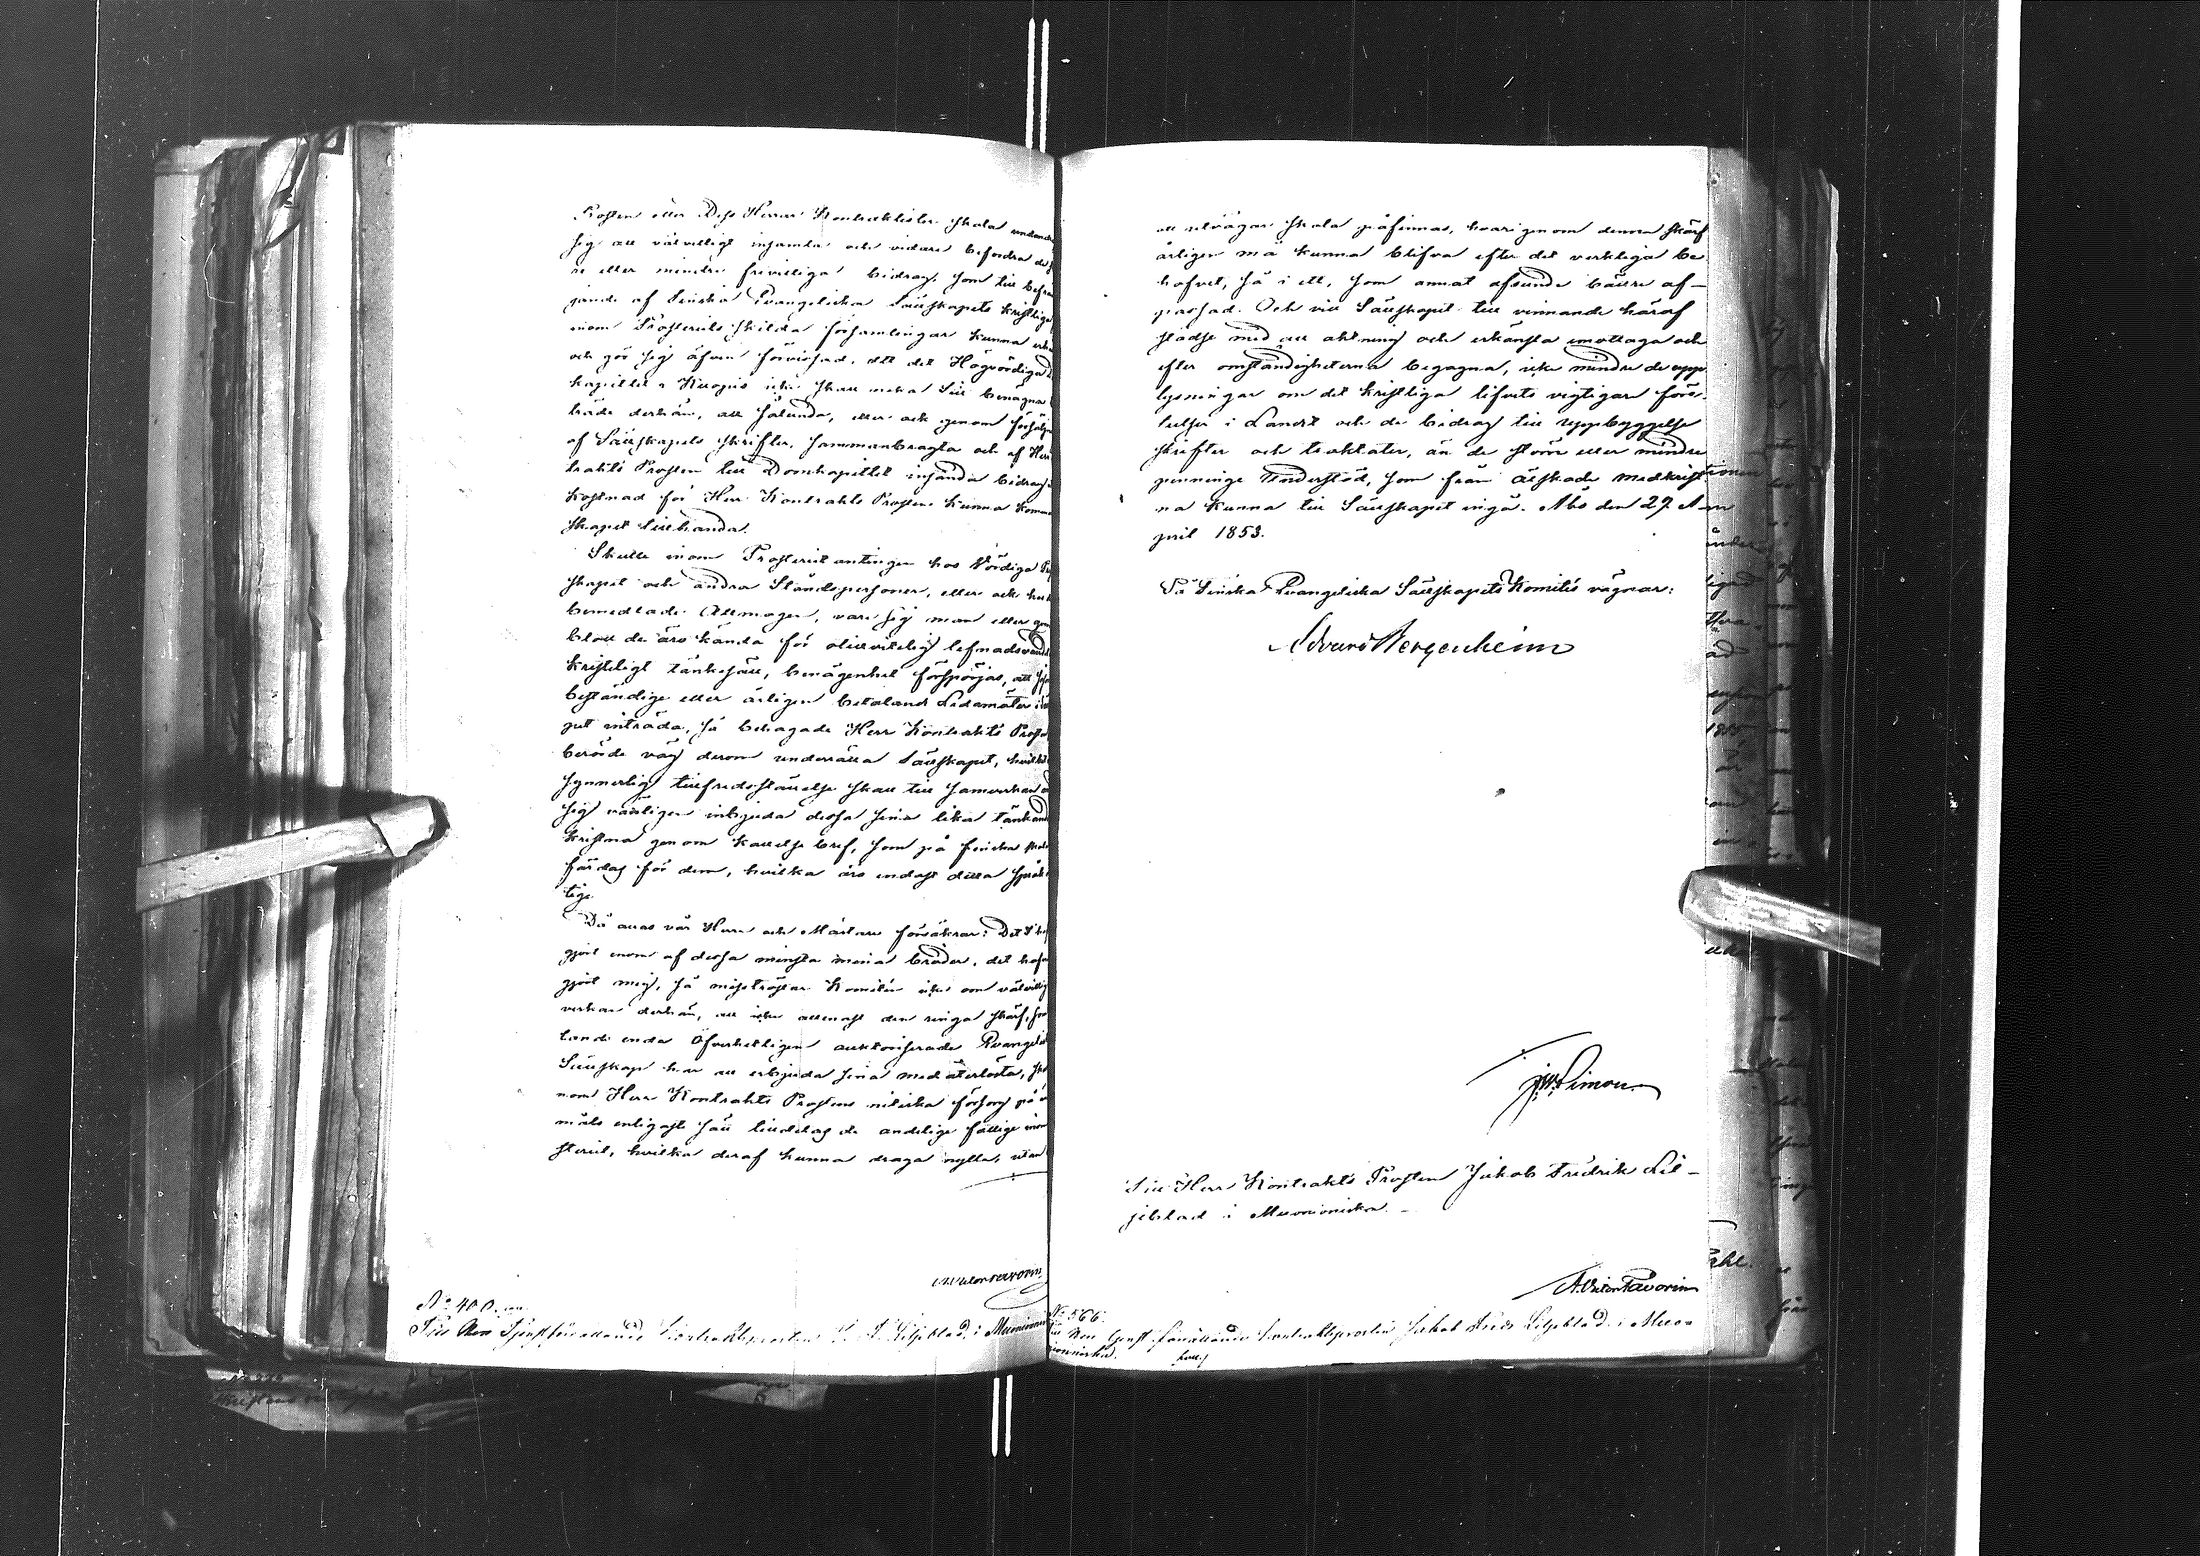 Prosten eller Dess Herrar Kontraktister skola undandra
sig att välvilligt insamla och vidare befordra de
re eller mindre frivilliga bidrag, som till befräm
jande af Finska Evangeliska Sällskapets kristliga
inom Prosteriets skilda församlingar kunna erhå
och gör sig äfven förvissad, att det Högvördiga
kapitlet i Kuopio icke skall neka Sitt benägna
träde derhän, att sålunda, eller ock genom försälj
af Sällskapets skrifter, sammanbragta och af Herr
trakts Prosten till Domkapitlet insända bidrag
kostnad för Herr Kontrakts Prosten kunna komma
skapet tillhanda.
Skulle inom Prosteriet antingen hos Vördiga Pre
skapet och andra Ståndspersoner, eller ock hos
bemedlade Allmogen, vare sig man eller qv
blott de äro kända för oförvitelig lefnadsvandel
kristeligt tänkesätt, benägenhet förspörjas, att så
beständige eller årligen betalande Ledamöter i
get inträda, så behagade Herr Kontrakts Prosten
berörde väg derom underrätta Sällskapet, hvilket
synnerlig tillfredsställelse skall till samverkan
sig vänligen inbjuda dessa sina lika tänkande
kristna genom kallelse bref, som på finska
färdas för dem, hvilka äro endast detta språk
tige.
Då allas vår Herre och Mästare försäkrar: Det I haf
gjort enom af dessa minsta mina bröder, det hafv
gjort mig, så misströstar Komitén icke om välvillig
verkan derhän, att icke allenast den ringa skärf, som
lands enda Öfverhetligen auktoriserade Evangeli
Sällskap har att erbjuda sina medåterlösta,
nom Herr Kontrakts Prostens nitiska försorg på
måls enligast sätt tilldelas de andelige fattige inom
steriet, hvilka deraf kunna draga nytta, utan
A. Victor Favorin
No 400.
Till Herr Tjenstförrättande Kontraktsprosten J. F. Liljeblad, i Muonion
att utvägar skola påfinnas, hvarigenom denna skärf
årligen må kunna blifva efter det verkliga be
hofvet, så i ett, som annat afseende bättre af-
passad. Och vill Sällskapet till vinnande häraf
städse med all aktning och erkänsla emottaga och
efter omständigheterna begagna, icke mindre de upp
lysningar om det kristliga lifvets vigtigare före-
teelser i Landet och de bidrag till uppbyggelse
skrifter och traktater, än de större eller mindre
penninge Understöd, som från älskade medkrist-
na kunna till Sällskapet ingå. Åbo den 27 A-
pril 1853.
På Finska Evangeliska Sällskapets Komités vägnar:
Edvard Bergenheim
Simon
Till Herr Kontrakts Prosten Jakob Fredrik Lil-
jeblad i Muonioniska. -
A. Victor Favorin
No 566.
Till Herr tjenstförrättande Kontraktsprosten Jakob Fredr. Liljeblad, i Muo-
nioniska.